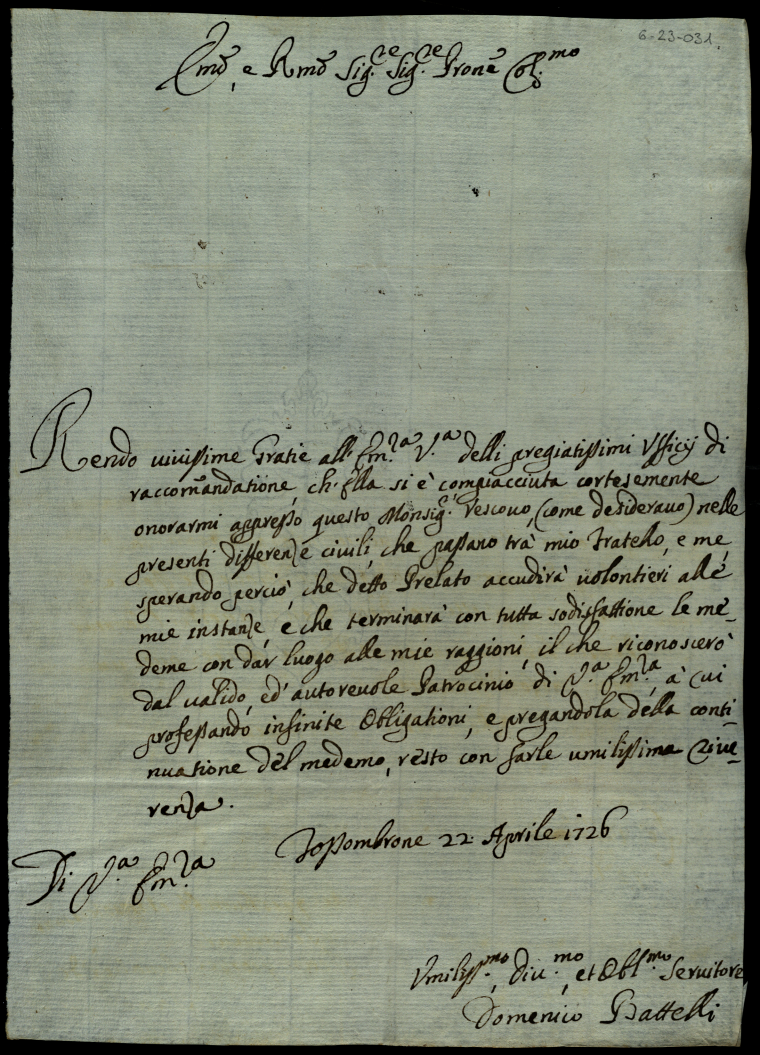 6-23-031.
Em̃o, e Rm̃o Sig.re Sig.re Prone Col.mo
Rendo uiuissime Gratie all' Em.za V.a delli pregiatissimi Vfficij di
raccom̃andatione, ch' Ella si è compiacciuta cortesemente
onorarmi appresso questo Monsig.r Vescouo, (come desiderauo) nelle
presenti differenze ciuili, che passano trà mio Fratello, e me,
sperando perciò, che detto Prelato accudirà uolontieri alle
mie instanze, e che terminarà con tutta sodisfattione le me-
deme con dar luogo alle mie raggioni, il che riconoscerò
dal ualido, ed' autoreuole Patrocinio di V.a Em.za, à cui
professando infinite Obligationi, e pregandola della conti-
nuatione del medemo, resto con farle umilissima Riue-
renza.
Fossombrone 22 Aprile 1726
Di V.a Em.za
Vmiliss.mo, diu.mo, et Obl.mo Seruitore
Domenico Battelli